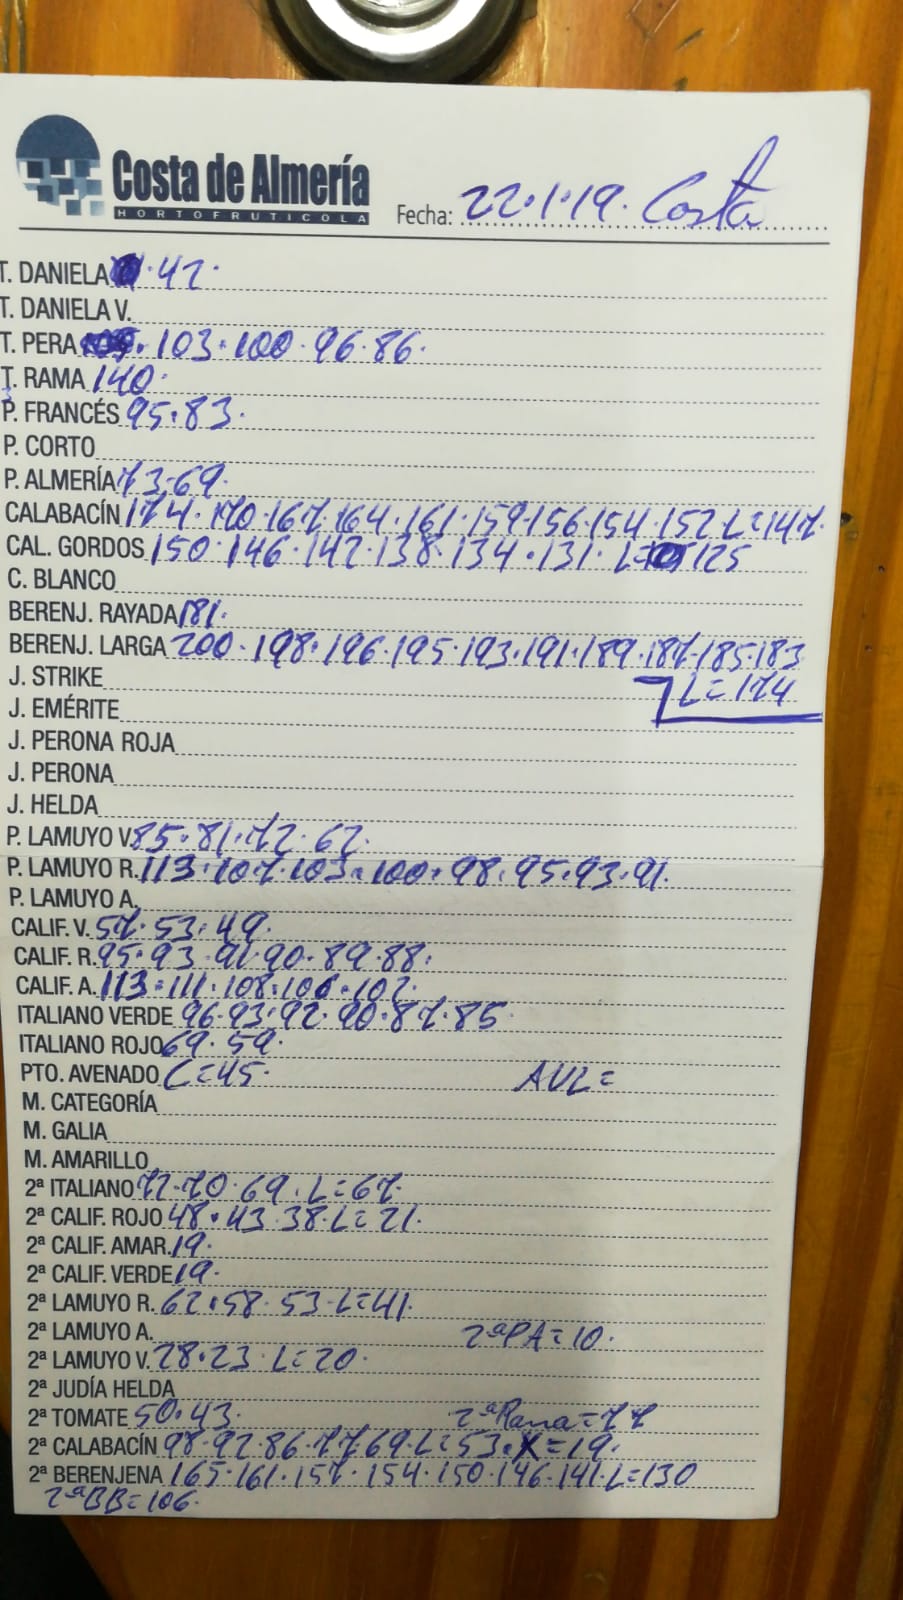 Costa de Almería
HORTOFRUTICOLA
Fecha: 22.1.19. Costa
T. DANIELA 42.
T. DANIELA V.
T. PERA 103.100.96.86.
T. RAMA 140.
P. FRANCÉS 95.83.
P. CORTO
P. ALMERÍA 73.69.
CALABACÍN 174.170.167.164.161.159.156.154.152.L=147.
CAL. GORDOS 150.146.142.138.134.131.L=125
C. BLANCO
BERENJ. RAYADA 181.
BERENJ. LARGA 200.198.196.195.193.191.189.187.185.183
J. STRIKE L=174
J. EMÉRITE
J. PERONA ROJA
J. PERONA
J. HELDA
P. LAMUYO V. 85.81.72.62.
P. LAMUYO R. 113.107.103.100.98.95.93.91.
P. LAMUYO A.
CALIF. V. 57.53.49.
CALIF. R. 95.93.91.90.89.88.
CALIF. A. 113.111.108.106.102.
ITALIANO VERDE 96.93.92.90.87.85
ITALIANO ROJO 69.59.
PTO. AVENADO L=45. AVL=
M. CATEGORÍA
M. GALIA
M. AMARILLO
2ª ITALIANO 72.70.69.L=67.
2ª CALIF. ROJO 48.43.38.L=21.
2ª CALIF. AMAR. 19.
2ª CALIF. VERDE 19.
2ª LAMUYO R. 62.58.53.L=41.
2ª LAMUYO A. 2ªPA=10.
2ª LAMUYO V. 28.23.L=20.
2ª JUDÍA HELDA
2ª TOMATE 50.43. 2ªRama=77
2ª CALABACÍN 98.92.86.77.69.L=53.X=19.
2ª BERENJENA 165.161.157.154.150.146.141.L=130
2ªBB=106.